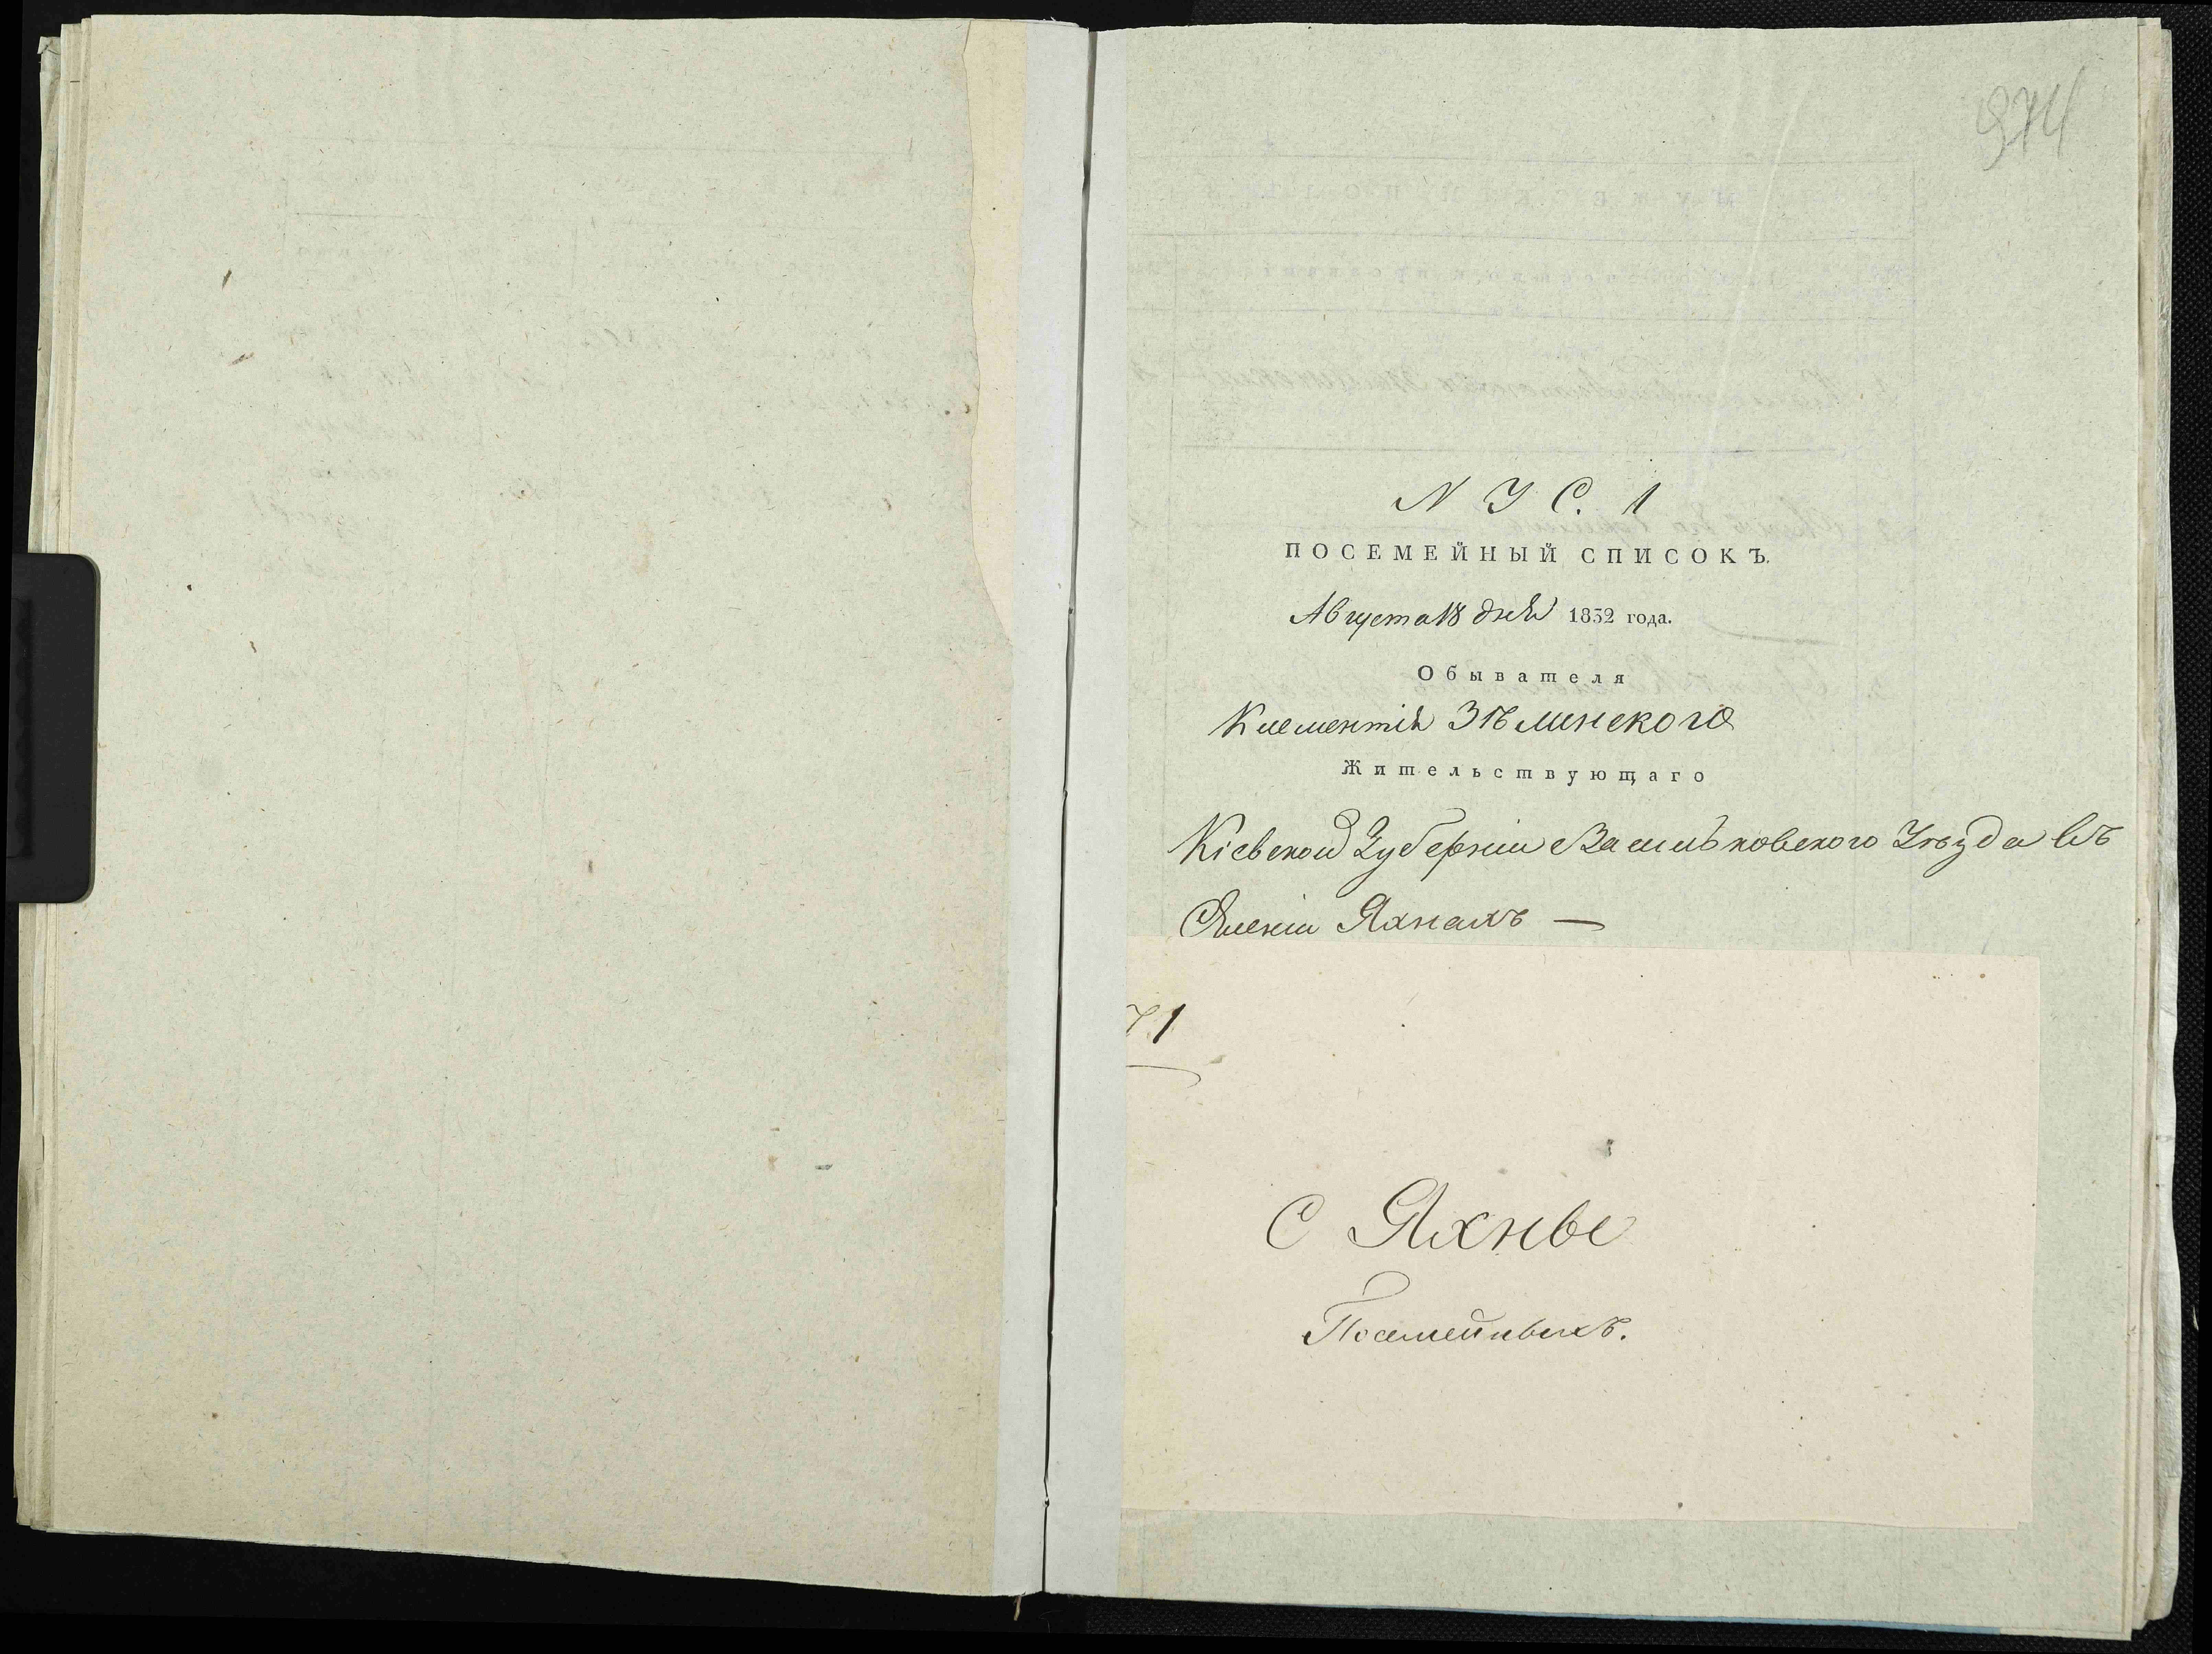 974
N У С. 1
ПОСЕМЕЙНЫЙ СПИСОКЪ.
Августа 18 дня 1832 года.
Обывателя
Клементія Зѣлинского
Жительствующаго
Кіевской Губерніи Васильковского Уѣзда въ
Селеніи Яхнахъ —
71
С Яхны
Посемейныхъ.